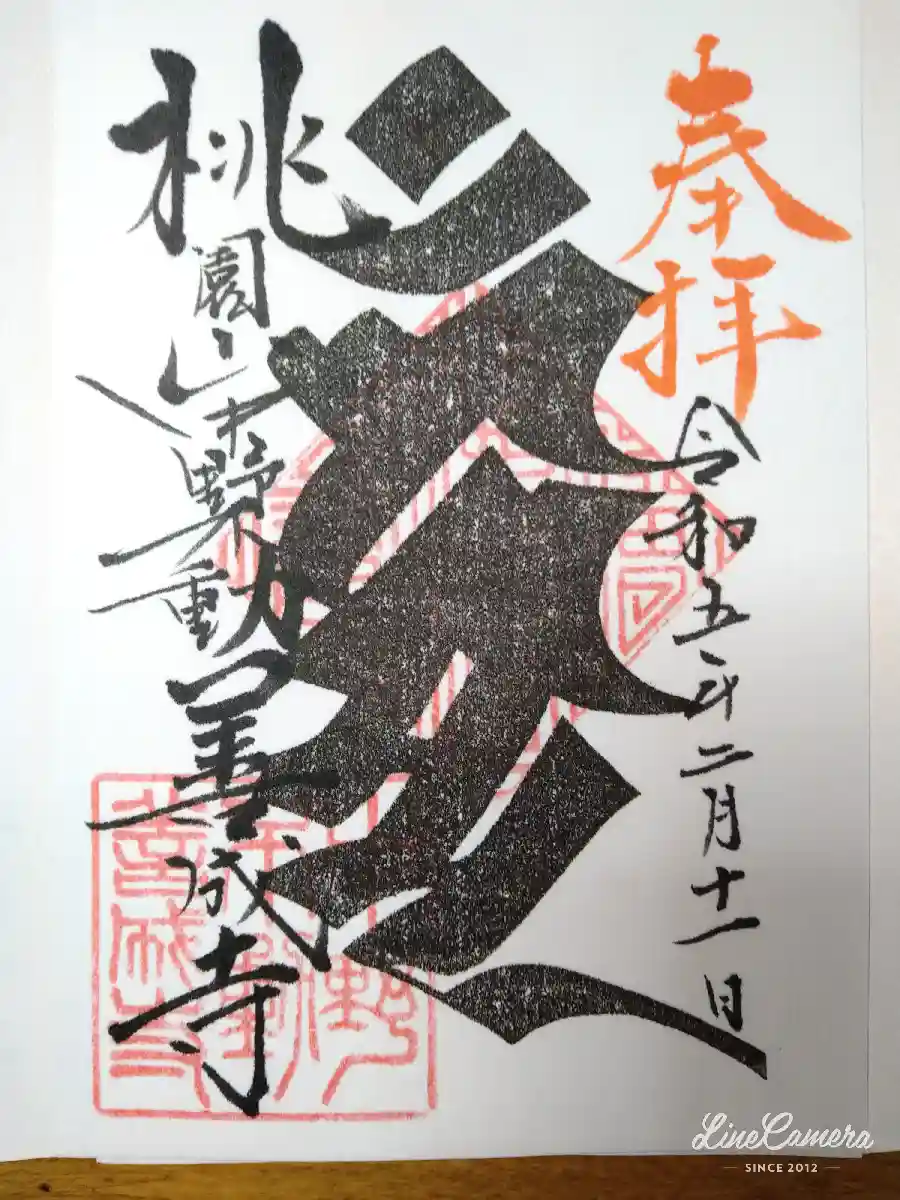 奉拝
令和五年二月十一日
桃園山
野
動
善成寺
LineCamera
SINCE 2012